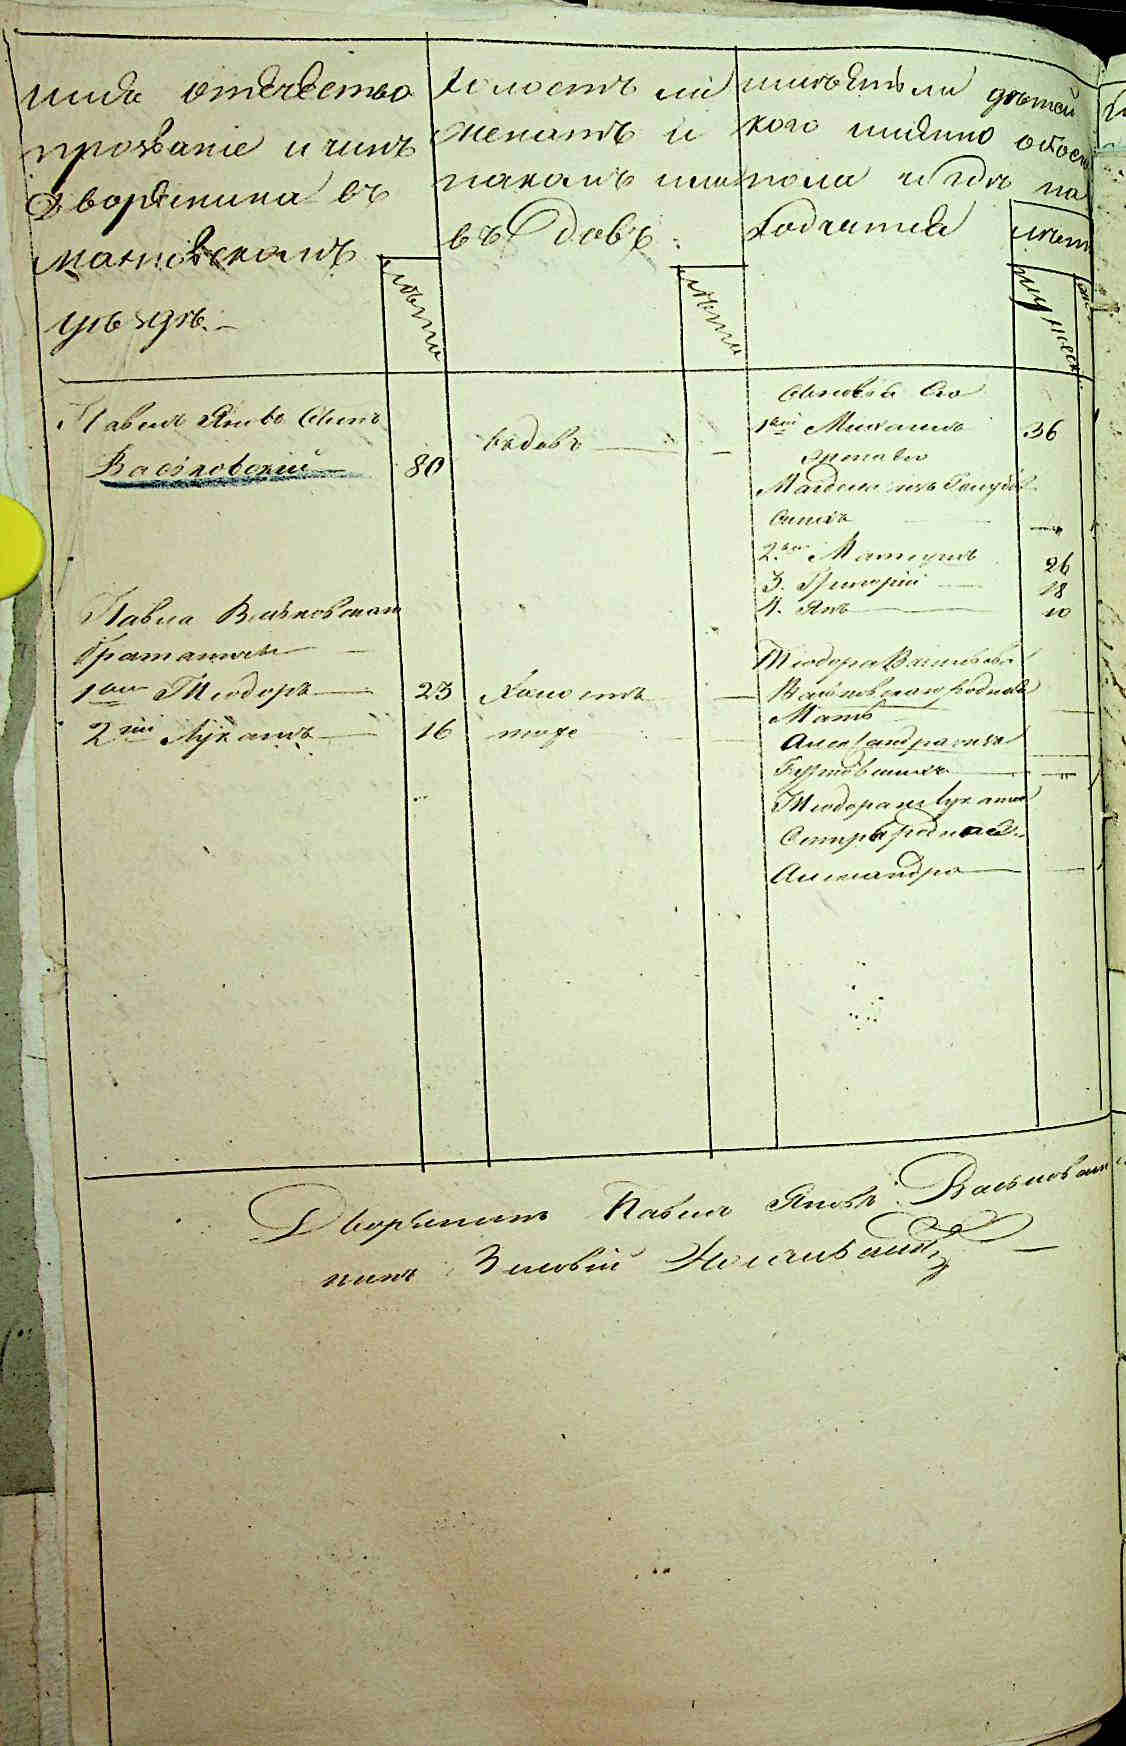 имя отечество
прозваніе и чинъ
дворянина въ
уѣздѣ.
лѣта
Холостъ ли
женатъ и
на комъ или
въдовъ.
лѣта
имѣетъ ли дѣтей
кого имянно обоего
пола и гдѣ на
ходятся
лѣта
мужеск
Павелъ Яковъ Сынъ
Васьковскій
80
въдовъ
Сыновья Его
1ый Михаилъ
36
2ой Матеушъ
26
3. Григорій
18
4. Янъ
10
Павла Васьковскаго
братаничи
1ый Теодоръ
23
Холостъ
2ій Лукашъ
16
тоже
Теодора
Васьковскаго родная
Мать
Александра
Теодора и Лукаша
Сестра родная
Александра
Дворянинъ Павелъ Яковъ Васьковскій